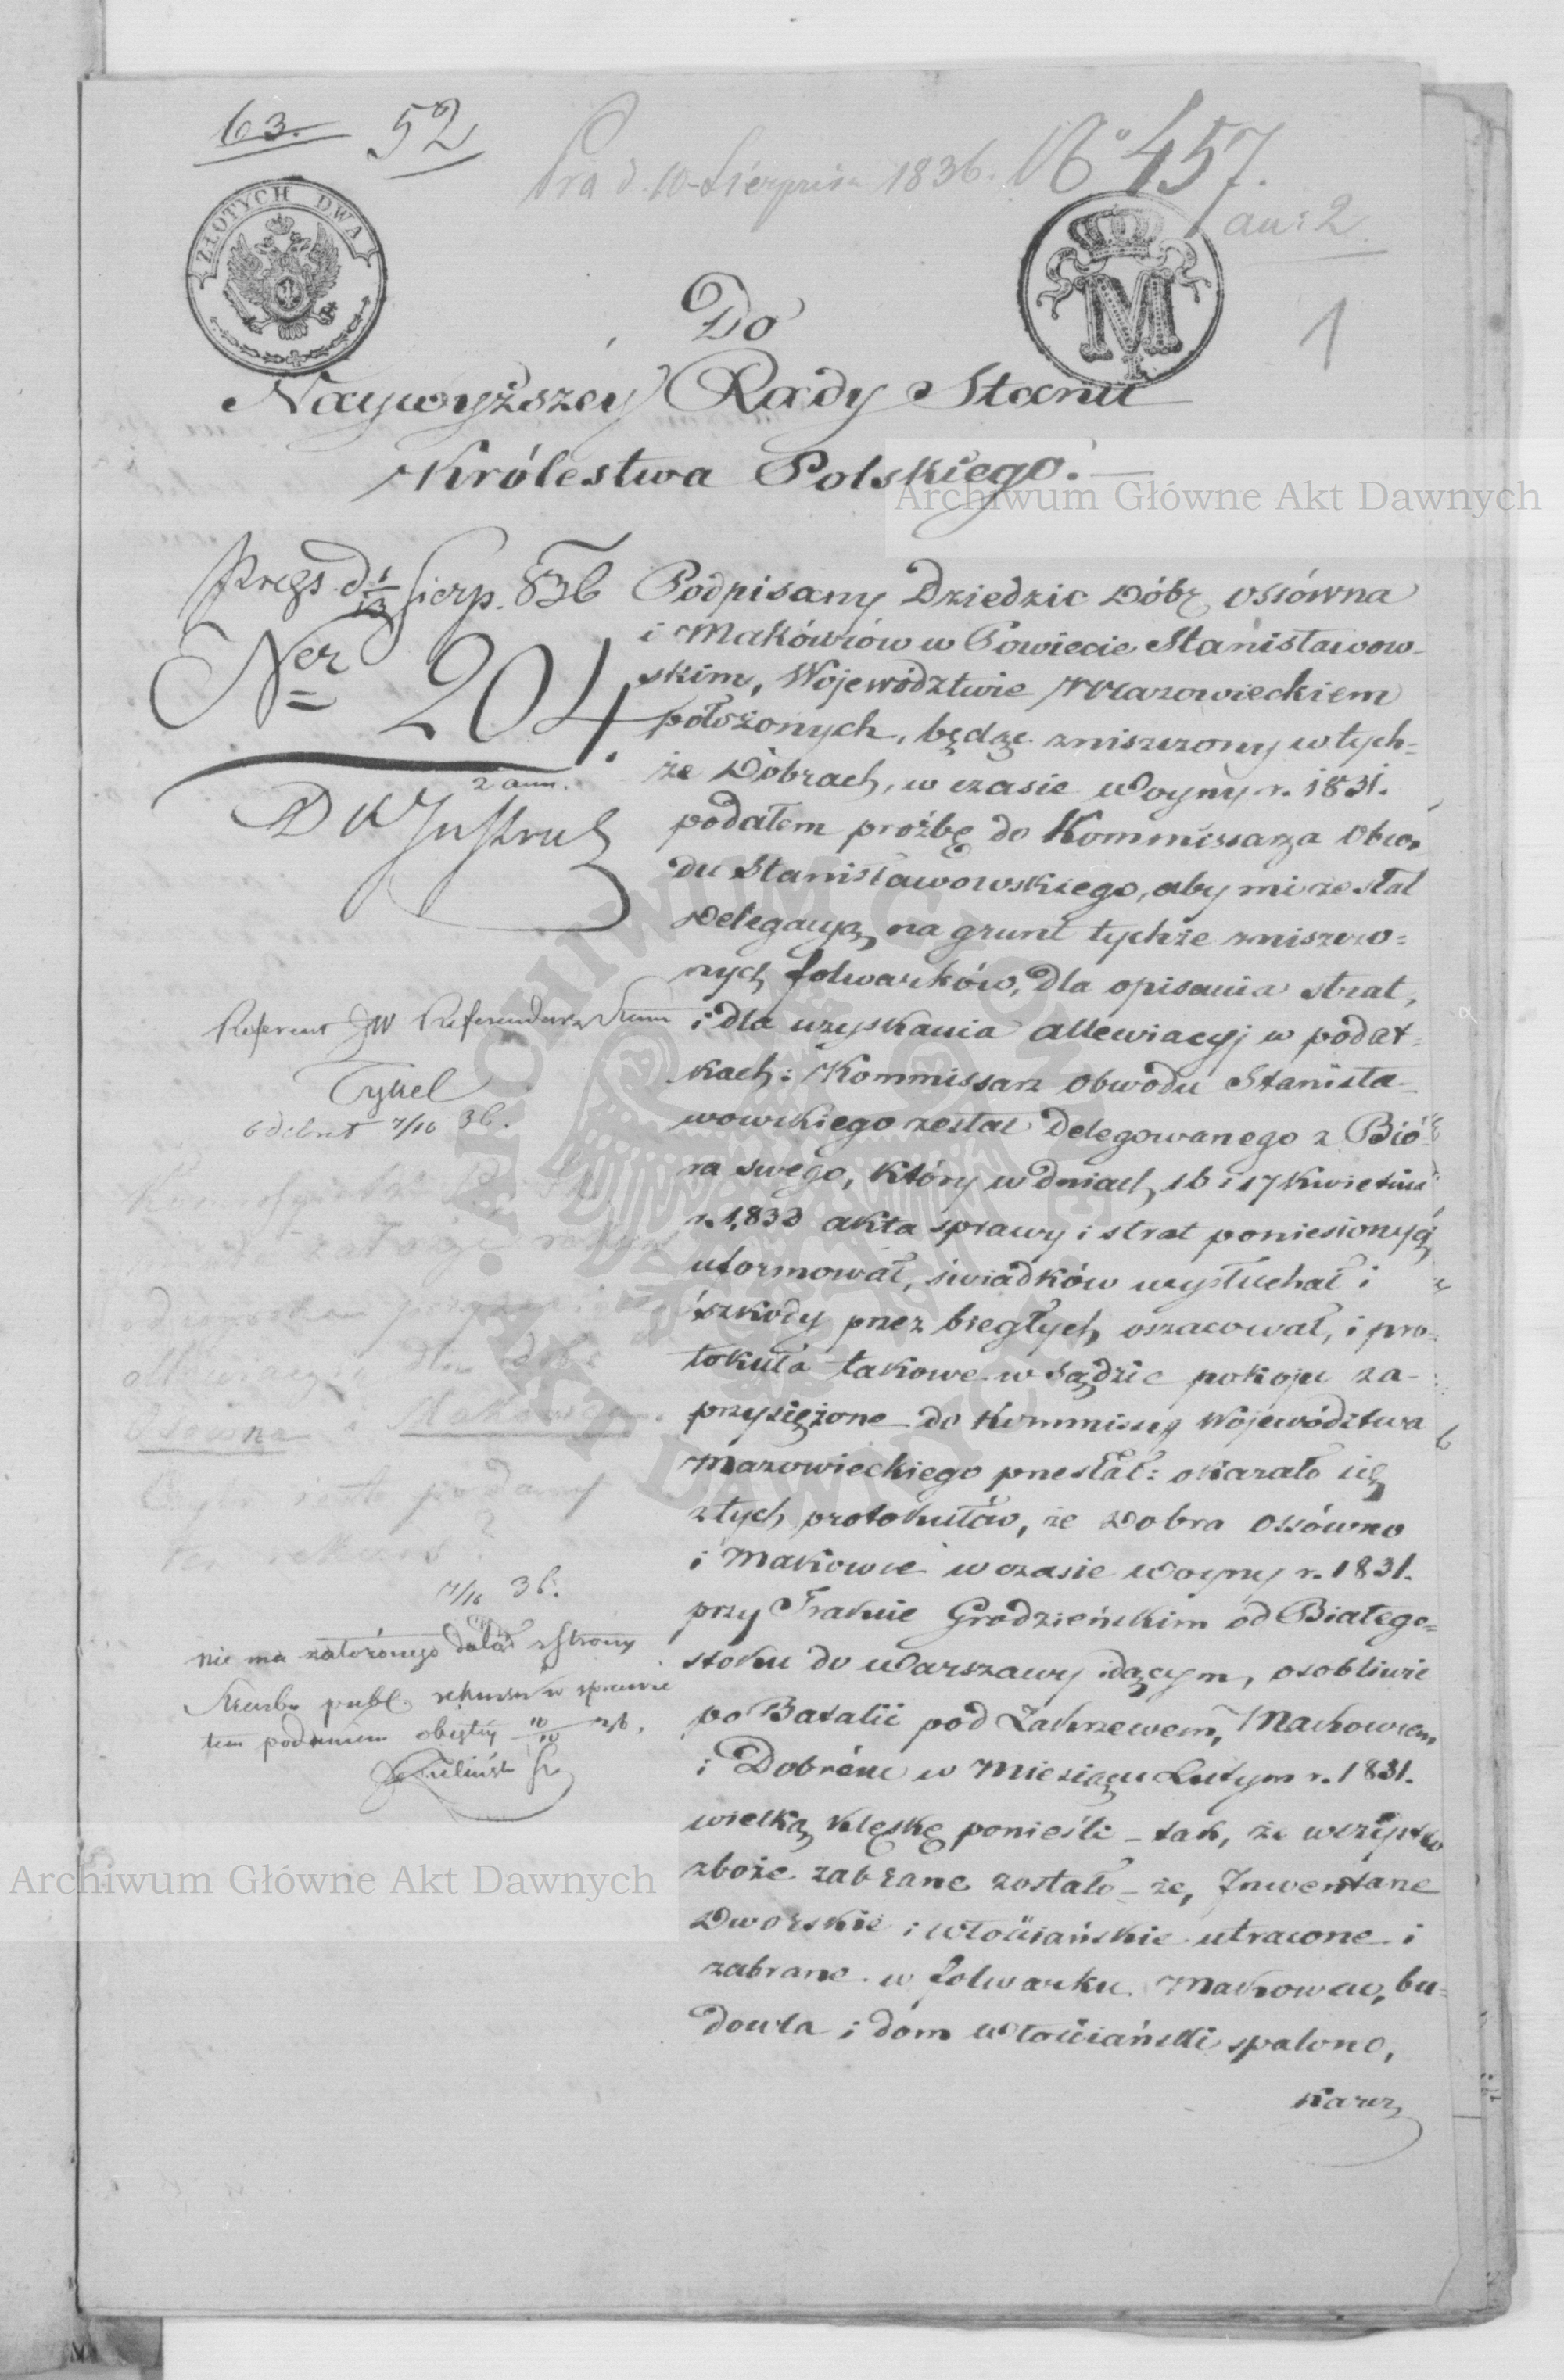 63. 52
Pra d. 10 Sierpnia 1836. No 457.
an: 2
ZŁOTYCH DWA
M
1
Do
Naywyższey Rady Stanu
Królestwa Polskiego.
Archiwum Główne Akt Dawnych
Sierp. 836
Ner 204.
2 ann.
Referent JW Referendarz Stanu
Tykel
odebrał 7/10 36.
Osówna i Makówca
podany
ten rekurs ?
7/10 36.
nie ma założonego dotąd z strony
Skarbu publ. rekursu w sprawie
tem podaniem objętey 10/10 36.
Podpisany Dziedzic Dóbr Ossówna
i Makówców w Powiecie Stanisławow-
skim, Województwie Mazowieckiem
położonych, będąc zniszczony w tych=
że Dobrach, w czasie Woyny r. 1831.
podałem proźbę do Kommissarza Obwo-
du Stanisławowskiego, aby mi zesłał
Delegacyą na grunt tychże zniszczo=
nych folwarków, dla opisania strat,
i dla uzyskania allewiacyj w podat=
kach: Kommissarz Obwodu Stanisła-
wowskiego zesłał Delegowanego z Bió-
ra swego, który w dniach 16 i 17 Kwietnia
r. 1833 akta sprawy i strat poniesionych
uformował, świadków wysłuchał i
szkody przez biegłych oszacował, i pro-
tokuła takowe w Sądzie pokoju za-
przysiężone do Kommissyi Województwa
Mazowieckiego przesłał: okazało się
z tych protokułów, że Dobra Ossówno
i Makowce w czasie Woyny r. 1831.
przy Trakcie Grodzieńskim od Białego=
stoku do Warszawy idącym, osobliwie
po Batalii pod Zakrzewem, Makowcem
i Dobrém w Miesiącu Lutym r. 1831.
wielką klęskę ponieśli – tak, że wszystko
zboże zabrane zostało – że, Inwentarze
Dworskie i włościańskie utracone i
zabrane w folwarku Makowcu, bu=
dowla i dom włościański spalono,
karcz
Archiwum Główne Akt Dawnych
ARCHIWUM GŁÓWNE
AKT DAWNYCH